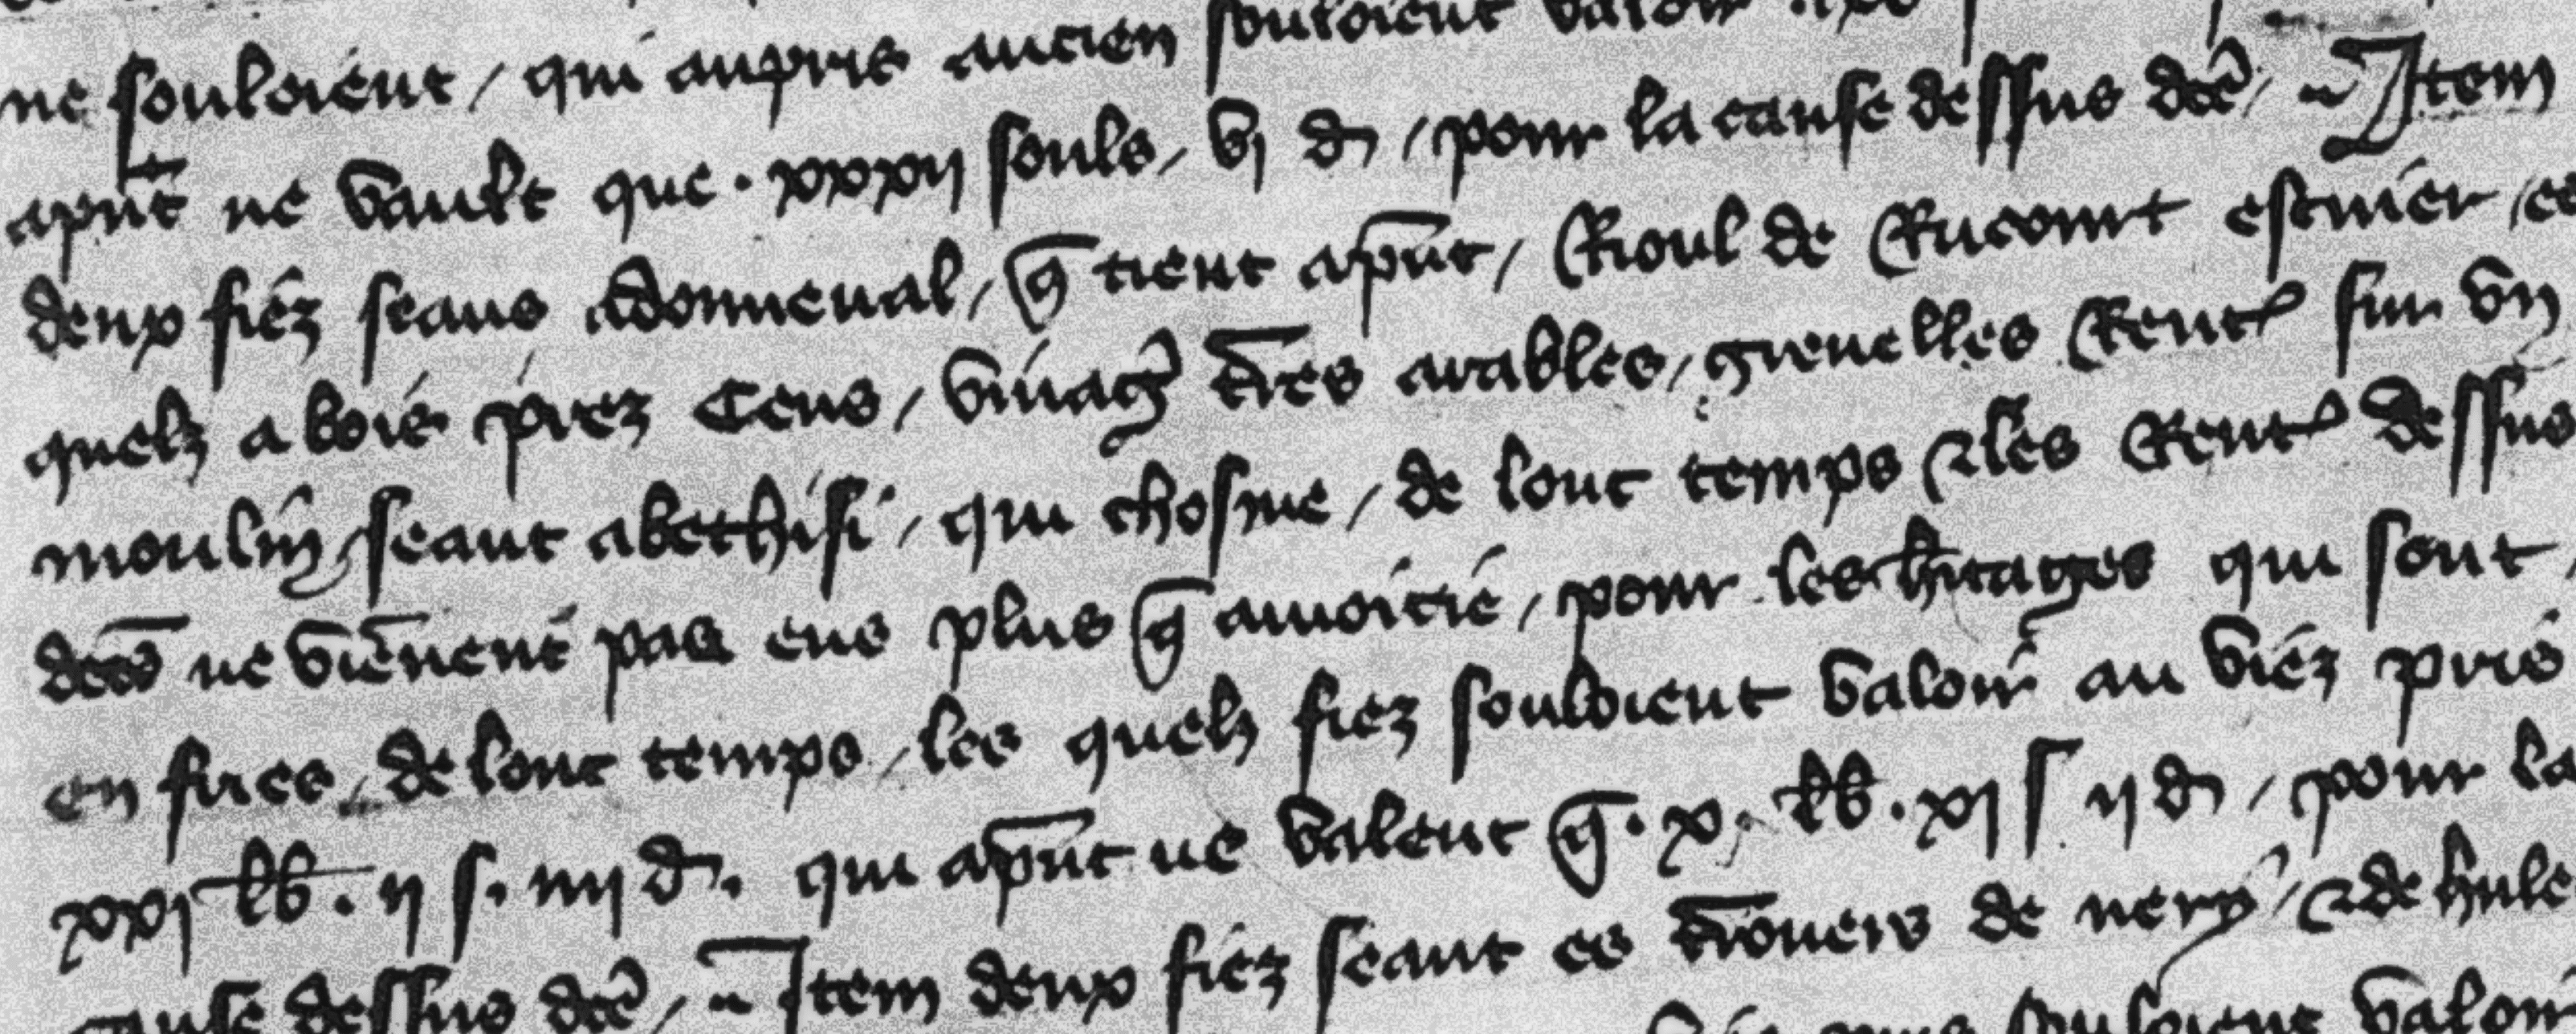 ne souloient / qui aupris ancien souloient valoir
apn̄t ne vault que · xxxij souls / vj d / pour la cause dessus dcē / Item
deux fiez seans adonneual / q̄ tient apn̄t / Rioul de Rucourt escuier / es
quelz a bois prez Cens / vinag̉ t̄res arables / grenelles Rent̉ sur vn
moulin / seant abethisi / qui chosme / de lont temps ⁊ les Rent̉ dessus
dc̄es ne viēnent pas ens plus q̄ amoitie / pour les h̄itages qui sont /
en fries / de lont temps / les quelz fiez souloient valoir au viez pris
xxj lb̄ · ij s · iiij d · qui apn̄t ne valent q̄ · x · lb̄ · xj s ij d / pour la
cause dessus dcē / Item deux fiez seant es t̄rouers de nery / ⁊ de hule
souloient valoir